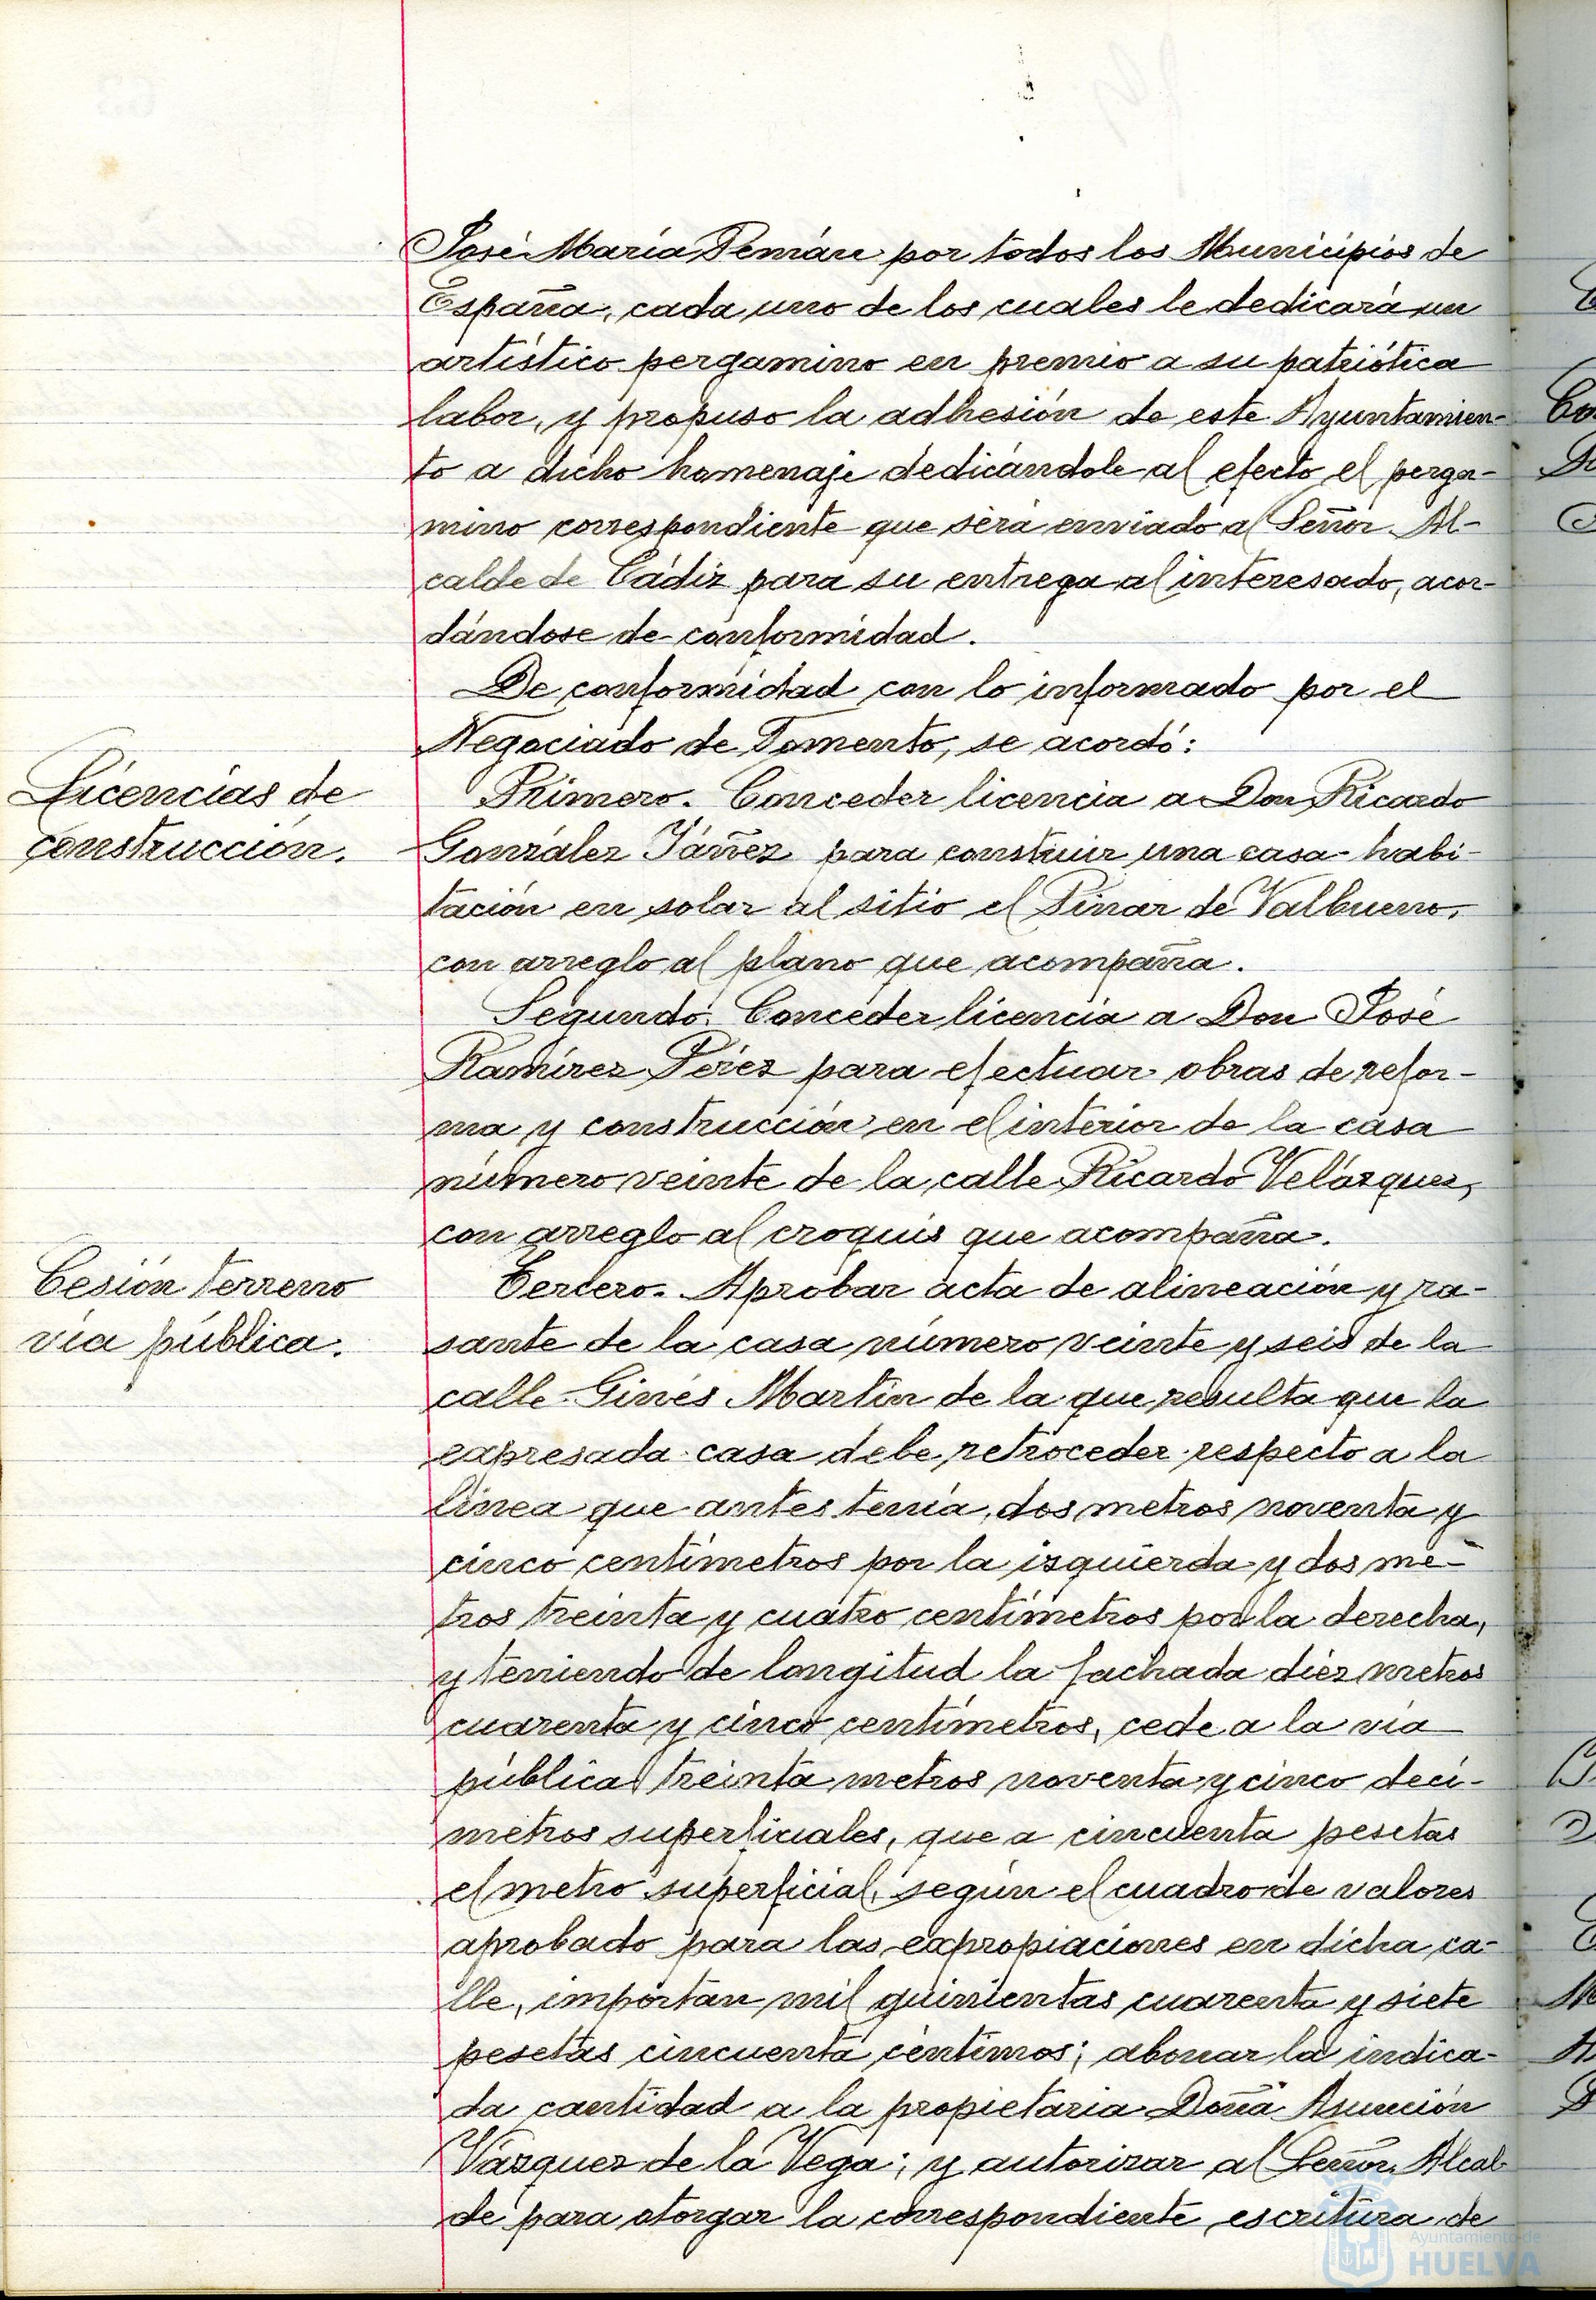 José María Pemán por todos los Municipios de
España, cada uno de los cuales le dedicará un
artístico pergamino en premio a su patriótica
labor, y propuso la adhesión de este Ayuntamien-
to a dicho homenaje dedicándole al efecto el perga-
mino correspondiente que será enviado al Señor Al-
calde de Cádiz para su entrega al interesado, acor-
dándose de conformidad.
De conformidad con lo informado por el
Negociado de Fomento, se acordó:
Licencias de
construcción.
Primero. Conceder licencia a Don Ricardo
González Yáñez para construir una casa-habi-
tación en solar al sitio el Pinar de Valbueno,
con arreglo al plano que acompaña.
Segundo. Conceder licencia a Don José
Ramírez Pérez para efectuar obras de refor-
ma y construcción en el interior de la casa
número veinte de la calle Ricardo Velázquez,
con arreglo al croquis que acompaña.
Cesión terreno
vía pública.
Tercero. Aprobar acta de alineación y ra-
sante de la casa número veinte y seis de la
calle Ginés Martín de la que resulta que la
expresada casa debe retroceder respecto a la
línea que antes tenía, dos metros noventa y
cinco centímetros por la izquierda y dos me-
tros treinta y cuatro centímetros por la derecha,
y teniendo de longitud la fachada diez metros
cuarenta y cinco centímetros, cede a la vía
pública treinta metros noventa y cinco decí-
metros superficiales, que a cincuenta pesetas
el metro superficial, según el cuadro de valores
aprobado para las expropiaciones en dicha ca-
lle, importan mil quinientas cuarenta y siete
pesetas cincuenta céntimos; abonar la indica-
da cantidad a la propietaria Doña Asunción
Vázquez de la Vega; y autorizar al Señor Alcal-
de para otorgar la correspondiente escritura de
Ayuntamiento de
HUELVA